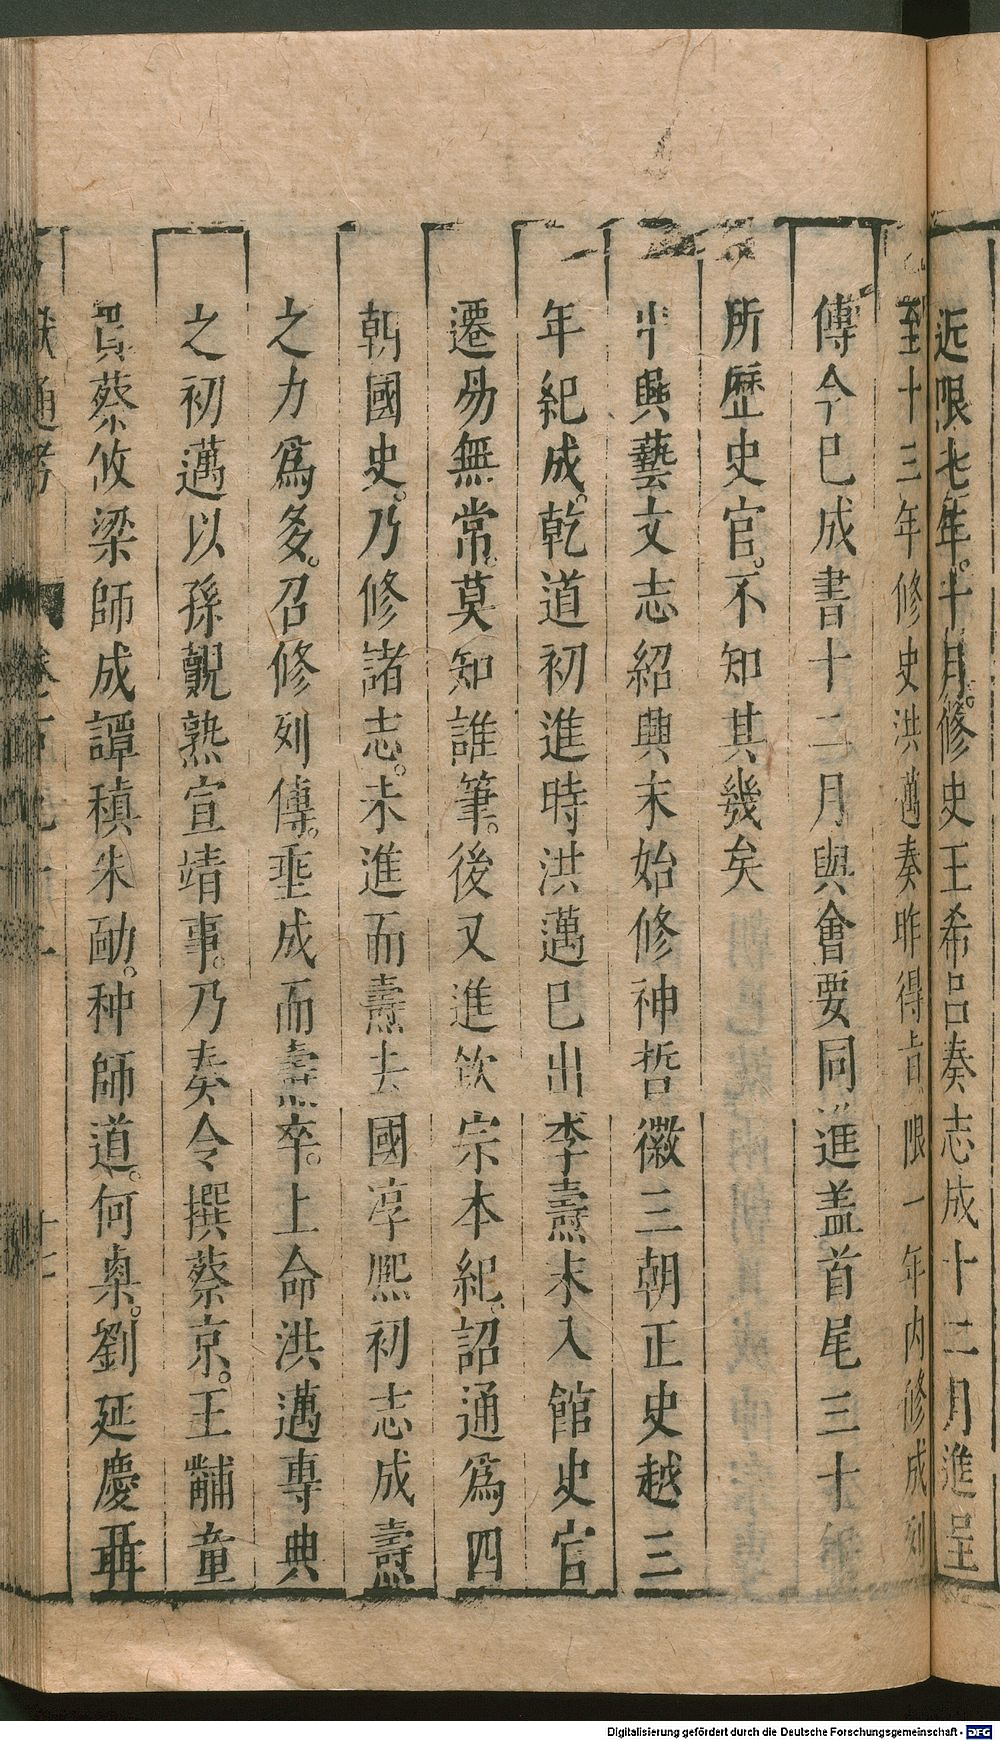 近限七年。十月。修史王希呂奏志成十二月進呈
至十三年修史洪邁奏昨得旨限一年内修成列
傳今已成書十二月與會要同進蓋首尾三十年
所歷史官。不知其幾矣
中興藝文志紹興末始修神哲徽三朝正史越三
年紀成。乾道初進時洪邁已出李燾未入館史官
遷易無常。莫知誰筆。後又進欽宗本紀。詔通爲四
朝國史。乃修諸志。未進而燾去國淳熙初志成燾
之力爲多。召修列傳。垂成而燾卒。上命洪邁專典
之初邁以孫覿熟宣靖事。乃奏令撰蔡京。王黼童
貫蔡攸梁師成譚稹朱勔。种師道。何㮚。劉延慶聶
獻通考 卷百九十二 十七
Digitalisierung gefördert durch die Deutsche Forschungsgemeinschaft - DFG